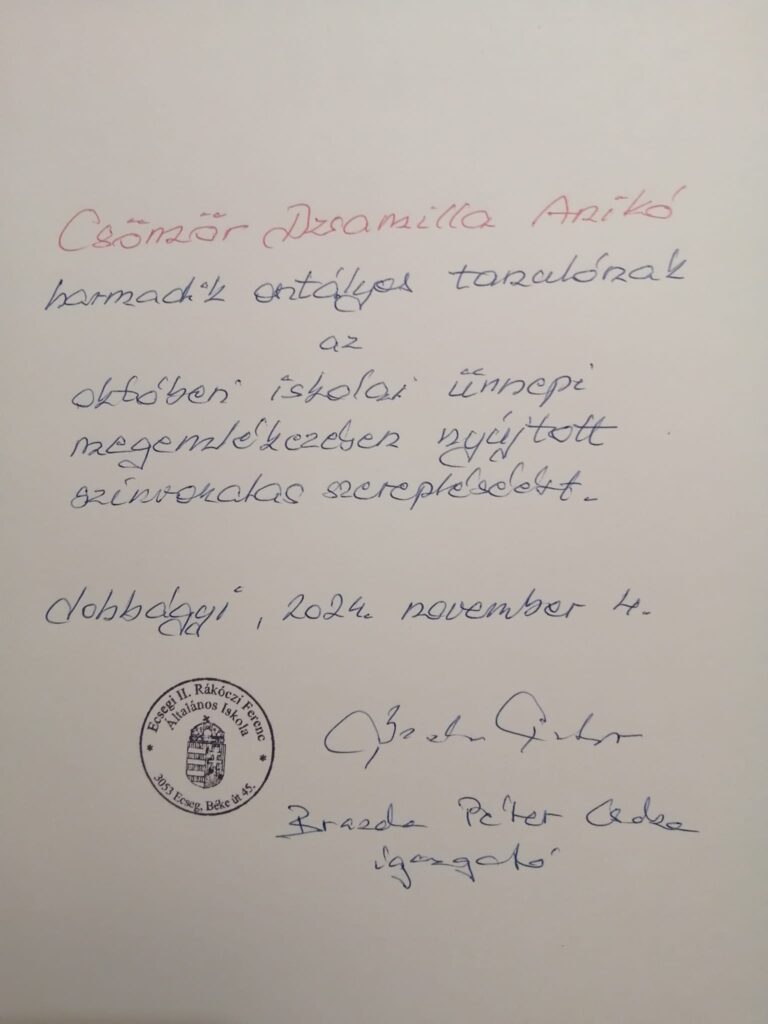 Csömör Dzsamilla Anikó
harmadik osztályos tanulónak
az
októberi iskolai ünnepi
megemlékezésen nyújtott
színvonalas szerepléséért.
2024. november 4.
Ecsegi II. Rákóczi Ferenc
Általános Iskola
3053 Ecseg, Béke út 45.
Brazda Péter
igazgató